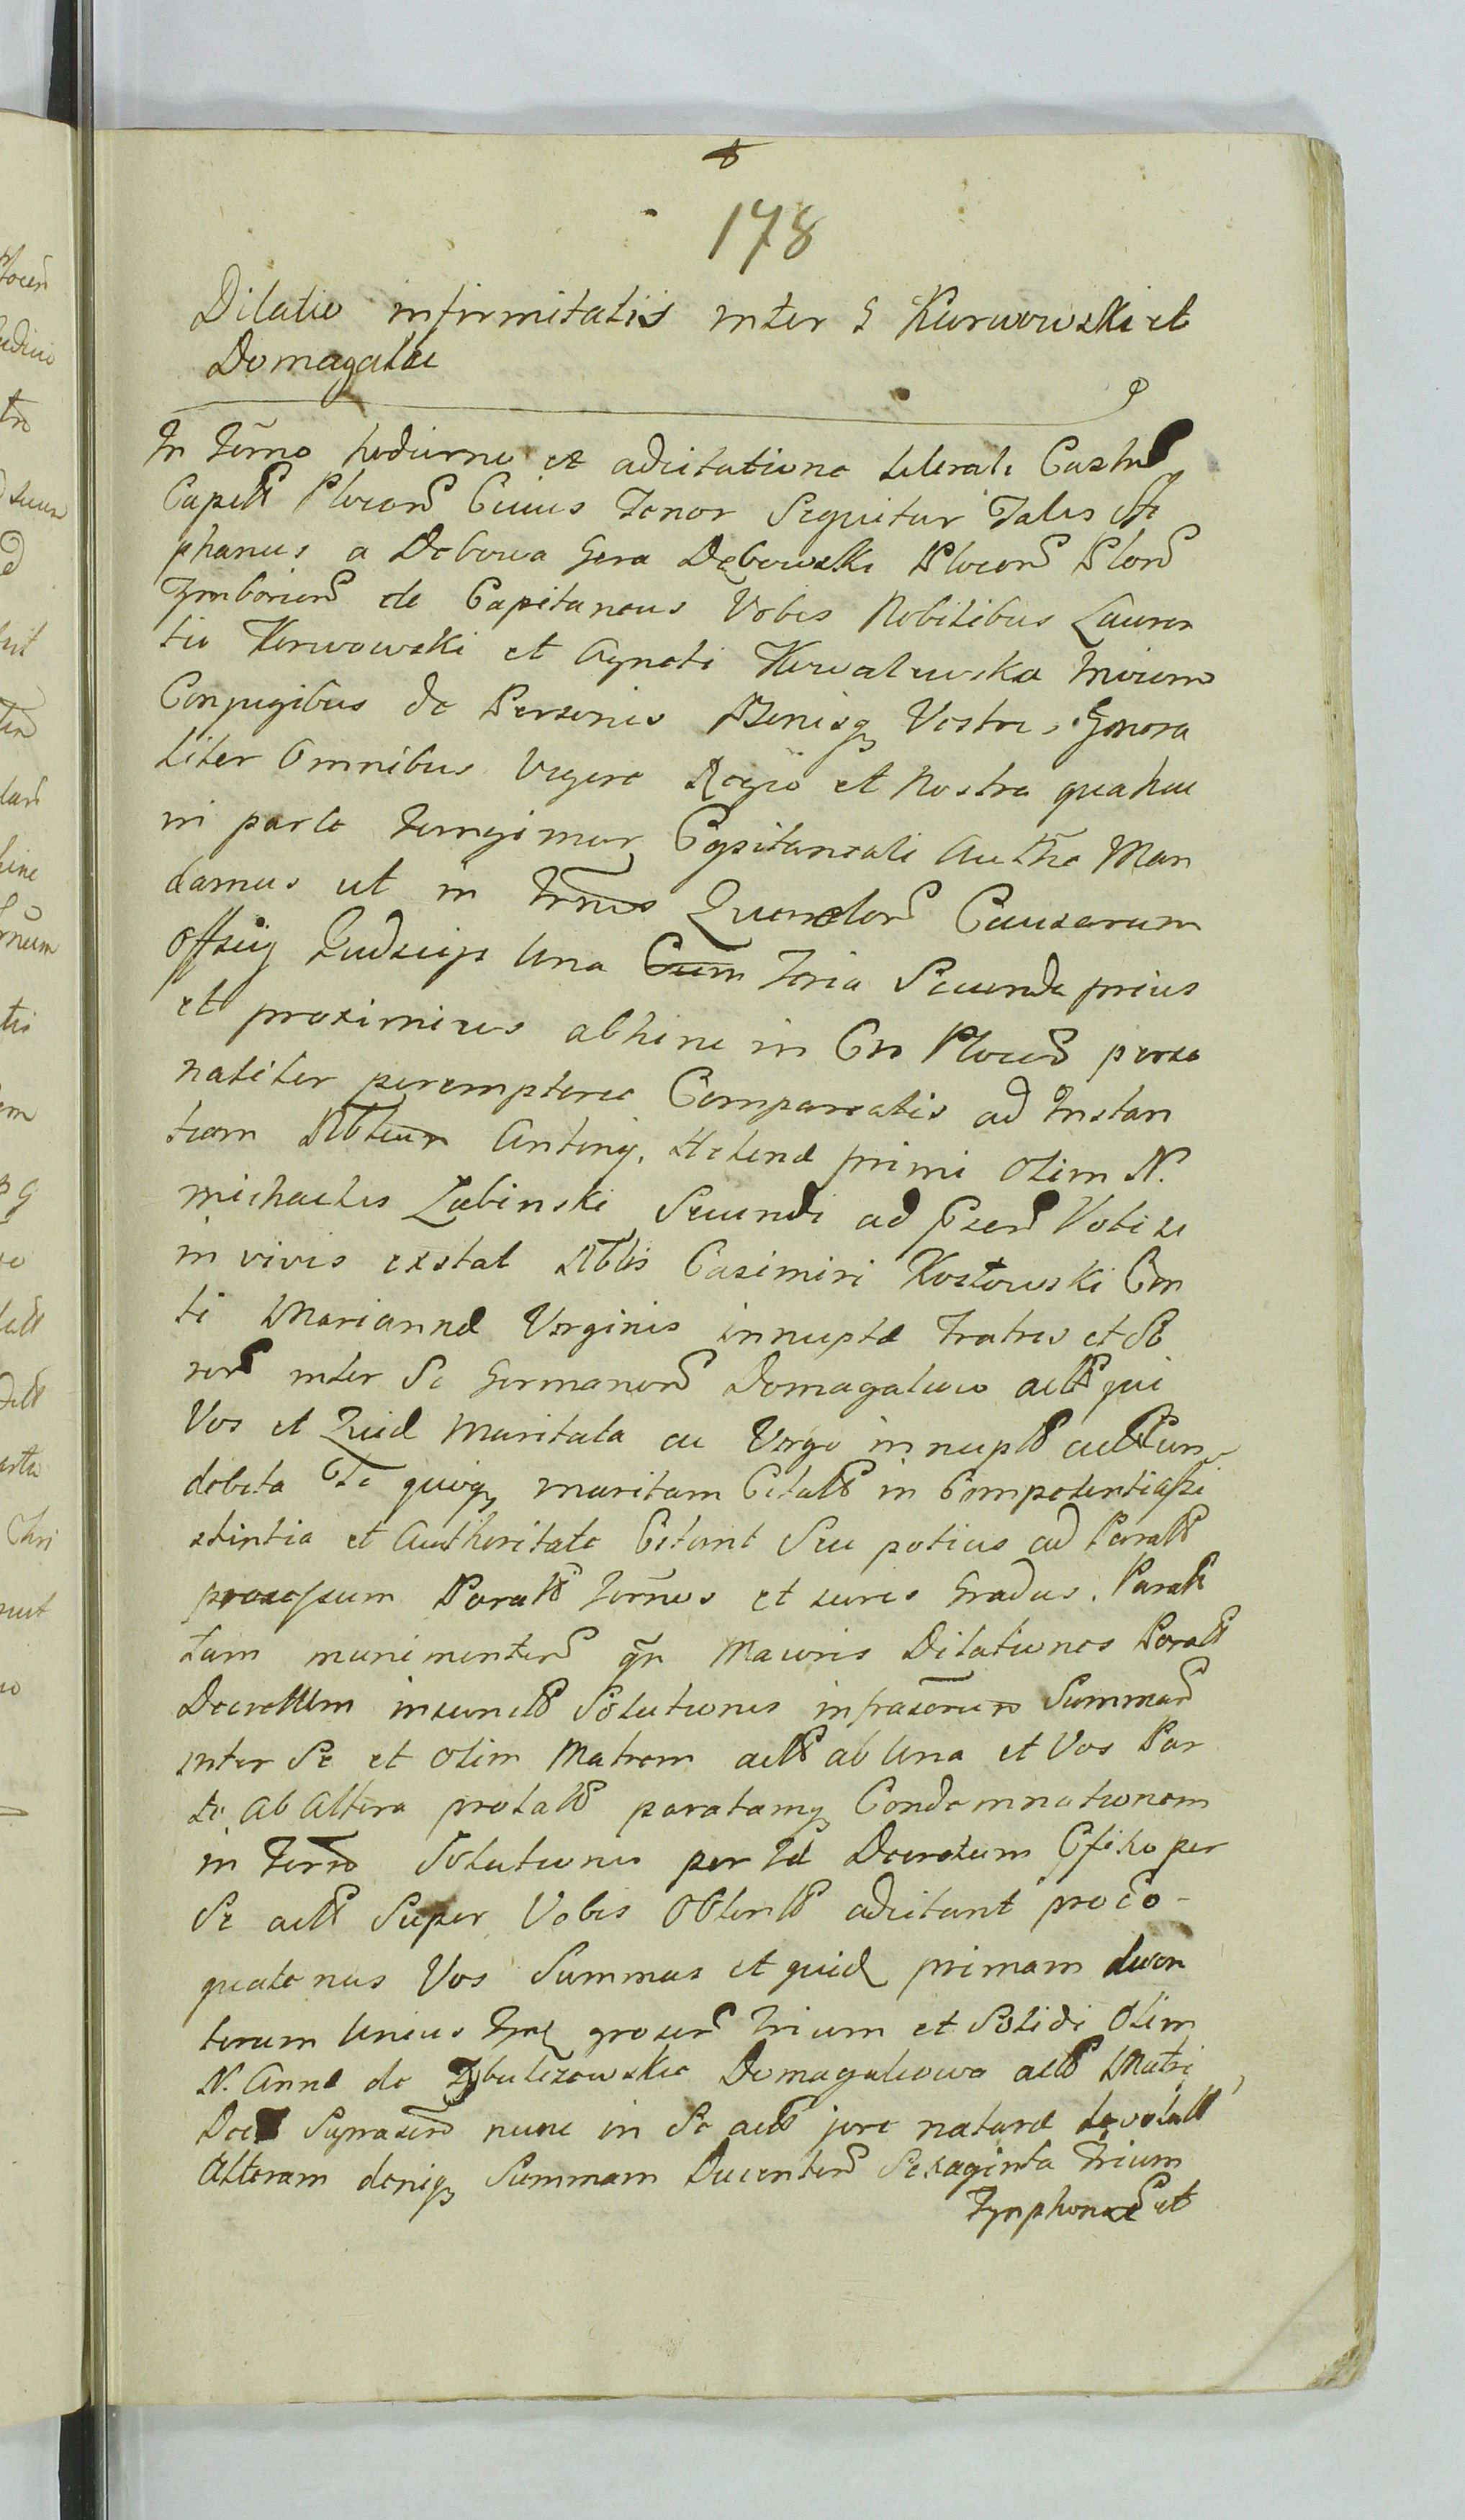 178
Dilatio infirmitatis inter G Kurwowski et
Domagalae
In Termo hodierno ex adcitatione literali Castrs
Capell Plocen Cuius Tenor Sequitur Talis Ste
phanus a Debowa Gora Dębowski Plocen
de Capitaneus Vobis Nobilibus Lauren
tio Kurwowski et Agneti Mutuo
Conjugibus de Personis Bonisq Vestris Genera
liter Omnibus Vigore Regio et Nostra qua hac
in parte fungimur Capitaneali Authe Man
damus ut in Trmis Querelar Causarum
Officij una Cum Feria Secunda prius
et proximius abhinc in Cro Plocen perso
naliter peremptorie Compareatis ad Instan
tiam Nblium Antonij, Helenæ primi Olim N.
Michaelis Zabinski Secundi ad Vobis
in vivis exstat Nblis Casimiri Kostowski Con
ti Mariannæ Virginis innuptæ Fratris et So
rorr inter Se Germanorr Domagalow actt qui
Vos et Quid Maritata ac Virgo innupta
debita Te quoq maritam Citatt in Competentia assi
stintia et Authoritate Citant Seu potius ad Paratt
processum Paratt Termos et iuris Gradus. Paratt
tam munimentorr qm Maioris Dilationes Paratt
Decretum iniunctt Solutionis infrascrum Summarr
inter Se et Olim Matrem actt ab Una et Vos Par
te ab Altera prolatt paratamq Condemnationem
in Termo Solutionis per Id Decretum per
Se actt Super Vobis Obtentt adcitant pro eo
quatenus Vos Summas et quid primam ducen
torum Unius grosorr trium et Solidi Olim
N. Annæ de Domagalowa actt Matri
Suprascr nunc in Se actt jure naturæ devolutt
Alteram deniq Summam Ducentorr Sexaginta Trium
Tynphonorr et